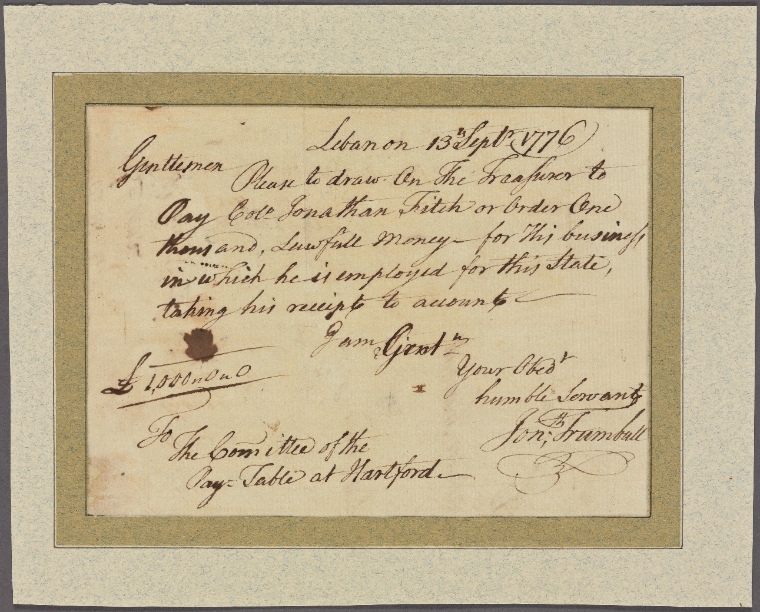 Lebanon 13th Septr 1776
Gentlemen
Please to draw On The Treasurer to
Pay Colo Jonathan Fitch or Order One
thousand, Lawfull Money - for His business
in which he is employed for this State,
taking his receipt to account
I am Gentn
Your Obedt
humble Servant
Jonth Trumbull
£1,000 " 0 " 0
To
The Comittee of the
Pay-Table at Hartford